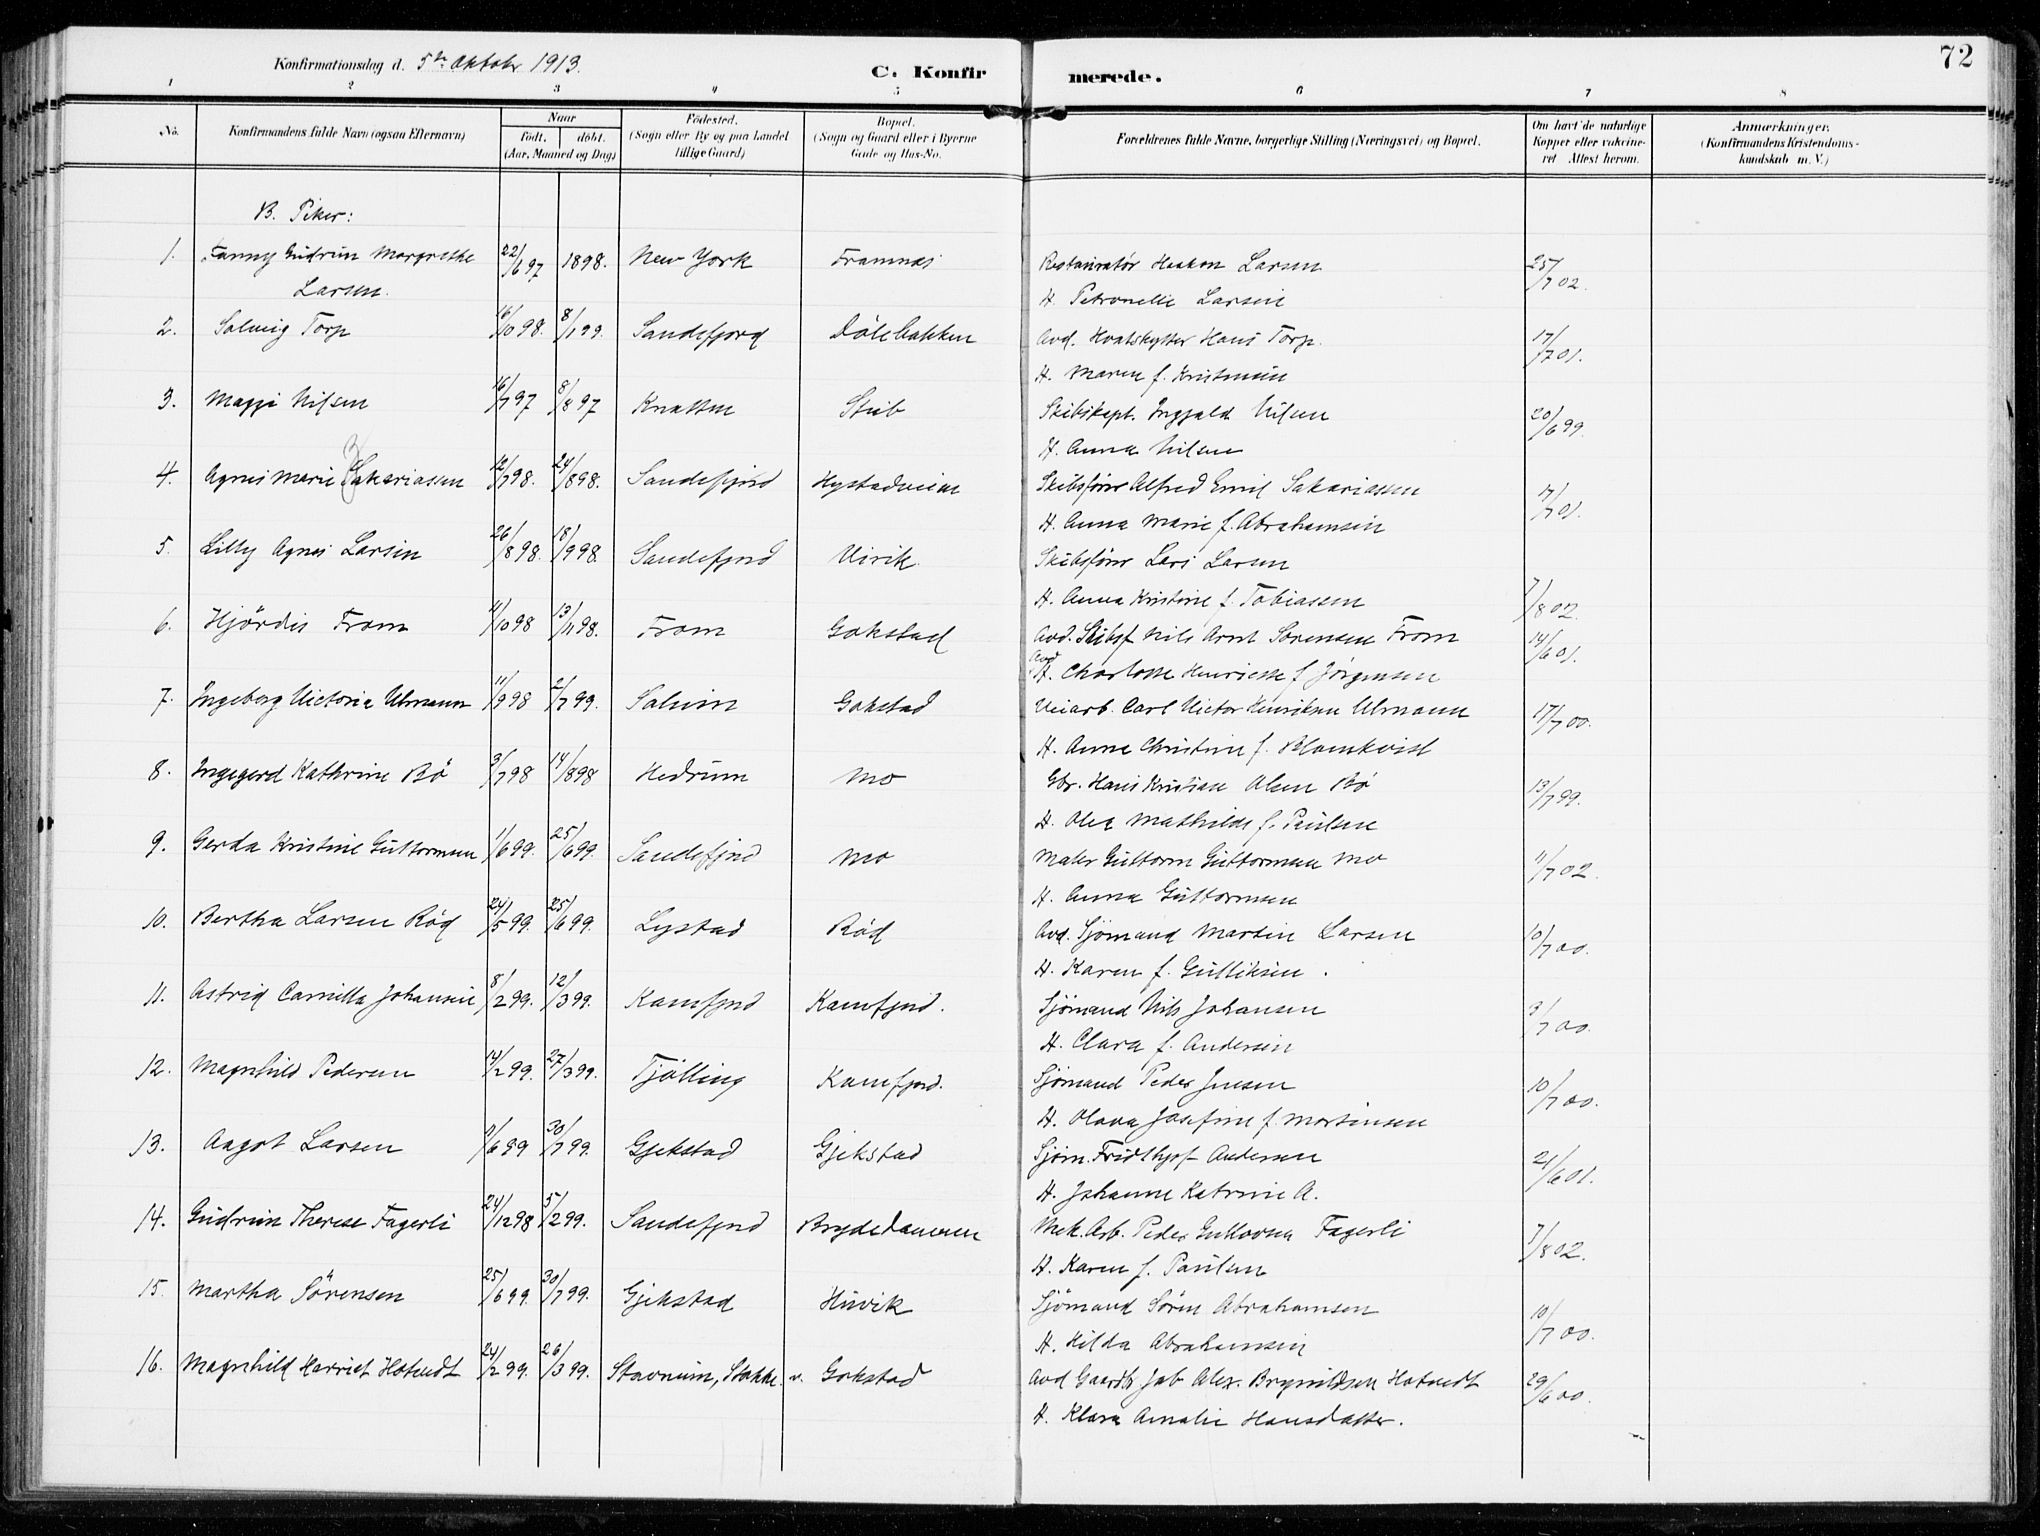 72
Konfirmationsdag d. 5te Oktober 1913.
C. Konfirmerede.
1 2 3 4 5 6 7 8
No.
Konfirmandens fulde Navn (ogsaa Efternavn)
Naar
født. døbt.
(Aar, Maaned og Dag)
Fødested.
(Sogn eller By og paa Landet
tillige Gaard)
Bopæl.
(Sogn og Gaard eller i Byerne
Gade og Hus-No.
Forældrenes fulde Navne, borgerlige Stilling (Næringsvei) og Bopæl.
Om havt de naturlige
Kopper eller vakcine-
ret Attest herom.
Anmærkninger.
(Konfirmandens Kristendoms-
kundskab m. V.)
B. Piker:
1. Fanny Gudrun Margrethe 22/6 97 1898. New York Framnæs Restauratør Haakon Larsen 25/7 02.
Larsen. H. Petronelle Larsen
2. Solveig Torp 16/10 98. 8/1 99. Sandefjord Dølebakken Avd. Hvalskytter Hans Torp. 17/7 01.
H. Maren f. Kristensen
3. Maggi Nilsen 16/7 97 8/8 97 Knatten Stub Skibskapt. Ingjald Nilsen 20/6 99.
H. Anna Nilsen
4. Agnes Marie Sakariassen 12/7 98. 24/8 98. Sandefjord Hystadveien Skibsfører Alfred Emil Sakariassen 17/7 01.
H. Anna Marie f. Abrahamsen
5. Lilly Agnes Larsen 26/8 98. 18/9 98. Sandefjord Virik. Skibsfører Lars Larsen
H. Anna Kristine f. Tobiassen 7/8 02.
6. Hjørdis Fram 11/10 98 13/11 98. Fram Gokstad Avd. Skibsf. Nils Arnt Sørensen Fram 14/6 01.
Avd. H. Charlotte Henriette f. Jørgensen
7. Ingeborg Victoria Ulmann 11/9 98 2/7 99. Solum Gokstad Veiarb. Carl Victor Henriksen Ulmann 17/7 00.
H. Anne Christine f. Blomkvist
8. Ingegerd Kathrine Bø 3/7 98 14/8 98 Hedrum Mo Gbr. Hans Kristian Olsen Bø 13/7 99.
H. Olea Mathilde f. Paulsen
9. Gerda Kristine Guttormsen 1/6 99. 25/6 99. Sandefjord Mo Maler Guttorm Guttormsen Mo 11/7 02.
H. Anna Guttormsen
10. Bertha Larsen Rød 24/5 99. 25/6 99. Lystad Rød Avd. Sjømand Martin Larsen 10/7 00.
H. Karen f. Gulliksen.
11. Astrid Camilla Johansen 8/2 99. 12/3 99. Kamfjord Kamfjord. Sjømand Nils Johansen 9/7 00.
H. Clara f. Andersen
12. Magnhild Pedersen 14/2 99. 27/3 99. Tjølling Kamfjord. Sjømand Peder Jensen 10/7 00.
H. Olava Josefine f. Martinsen
13. Aagot Larsen /6 99 30/7 99. Gjekstad Gjekstad Sjøm. Fridthjof Andersen 21/6 01.
H. Johanne Katrine A.
14. Gudrun Therese Fagerli 24/12 98 5/2 99. Sandefjord Brydedammen Mek. Arb. Peder Gullovsen Fagerli 7/8 02.
H. Karen f. Paulsen
15. Martha Sørensen 25/6 99. 30/7 99. Gjekstad Huvik Sjømand Søren Abrahamsen 10/7 00.
H. Hilda Abrahamsen
16. Magnhild Harriet Hotvedt 24/2 99. 26/3 99. Stavnum, Stokke. v. Gokstad Avd Gaardb. Jab Alex. Brynildsen Hotvedt 29/6 00.
H. Klara Amalie Hansdatter.